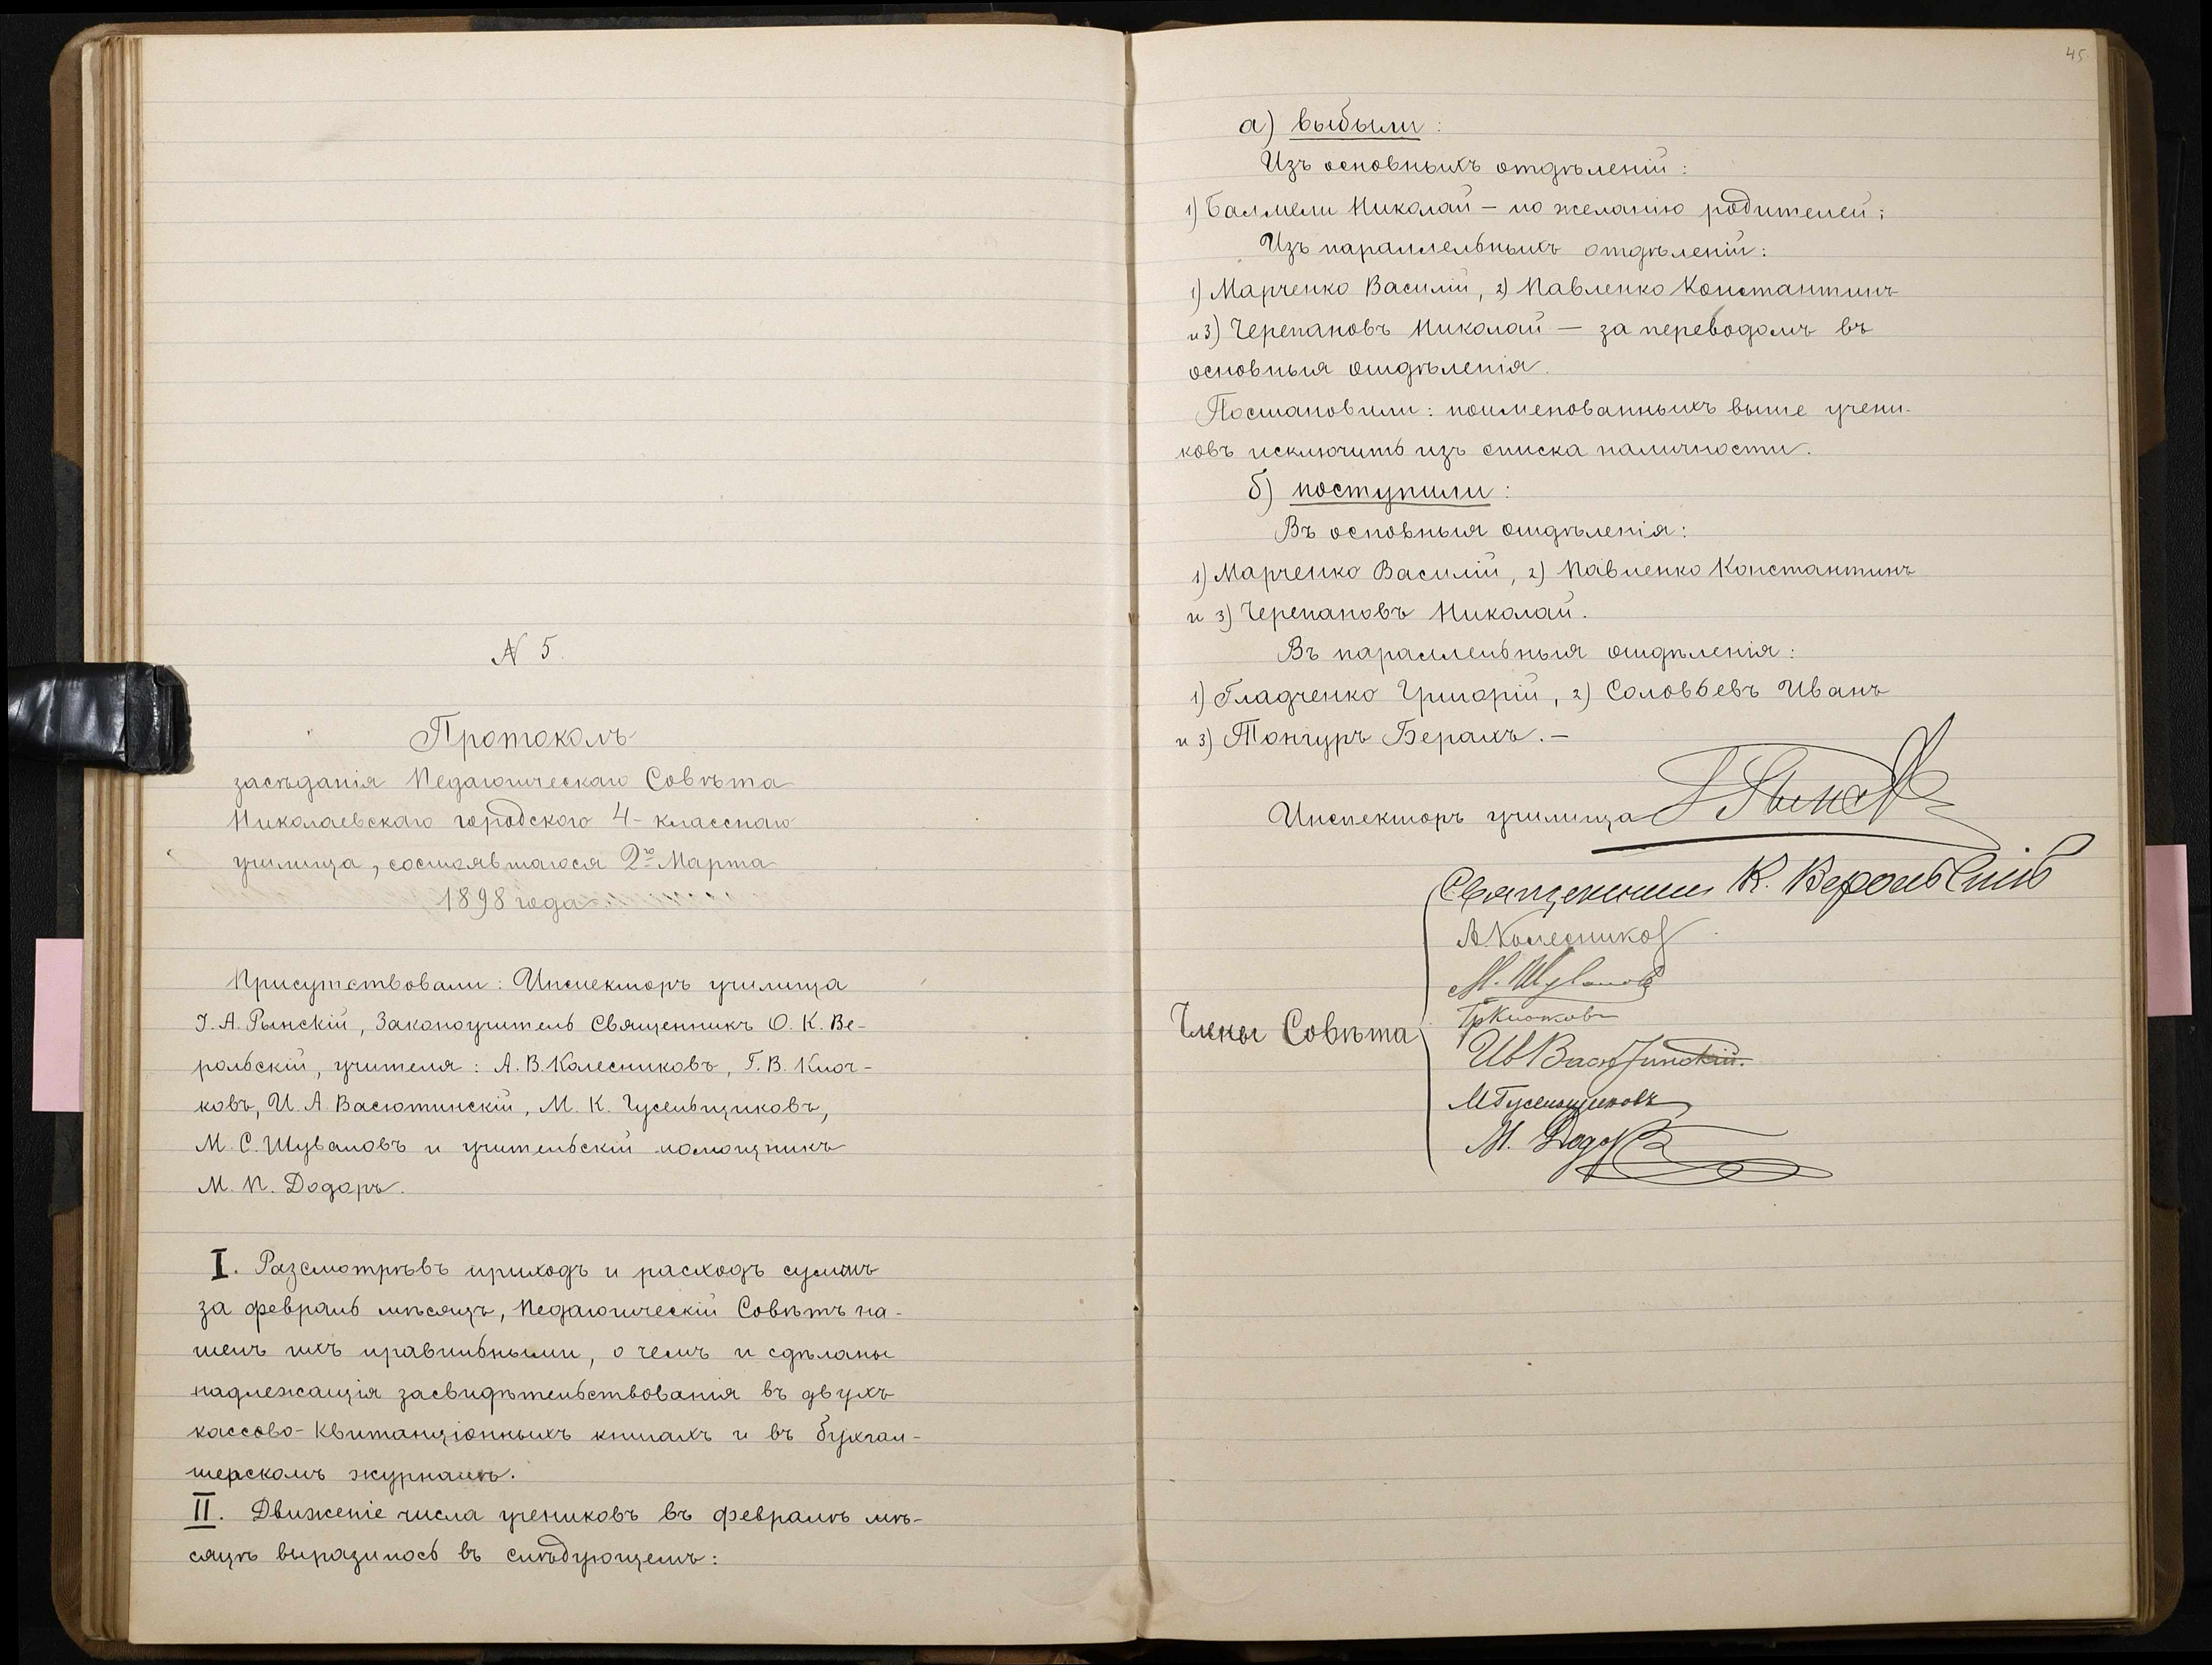 N 5.
Протоколъ
засѣданія Педагогическаго Совѣта
Николаевскаго городского 4-класснаго
училища, состоявшагося 2го Марта
1898 года
Присутствовали: Инспекторъ училища
І. А. Рынскій, Законоучитель Священникъ О. К. Ве-
рольскій, учителя: А. В. Колесниковъ, Г. В. Клоч-
ковъ, И. А. Васютинскій, М. К. Гусельщиковъ,
М. С. Шуваловъ и учительскій помощникъ
М. П. Додоръ.
I. Разсмотрѣвъ приходъ и расходъ суммъ
за февраль мѣсяцъ, Педагогическій Совѣтъ на-
шелъ ихъ правильными, о чемъ и сдѣланы
надлежащія засвидѣтельствованія въ двухъ
кассово-квитанціонныхъ книгахъ и въ бухгал-
терскомъ журналѣ.
II. Движеніе числа учениковъ въ февралѣ мѣ-
сяцѣ выразилось въ слѣдующемъ:
45.
а) выбыли:
Изъ основныхъ отдѣленій:
1) Балмели Николай – по желанію родителей;
Изъ параллельныхъ отдѣленій:
1) Марченко Василій, 2) Павленко Константинъ
и 3) Черепановъ Николай — за переводомъ въ
основныя отдѣленія.
Постановили: поименованныхъ выше учени-
ковъ исключить изъ списка наличности.
б) поступили:
Въ основныя отдѣленія:
1) Марченко Василій, 2) Павленко Константинъ
и 3) Черепановъ Николай.
Въ параллельныя отдѣленія:
1) Гладченко Григорій, 2) Соловьевъ Иванъ
и 3) Тонгуръ Берахъ. –
Инспекторъ училища І Рынскій
Священникъ К. Верольскій
А Колесников
М. Шуваловъ
Гр Клочковъ
Члены Совѣта
Ив Васютинскій.
М Гусельщиковъ
М. Додоръ